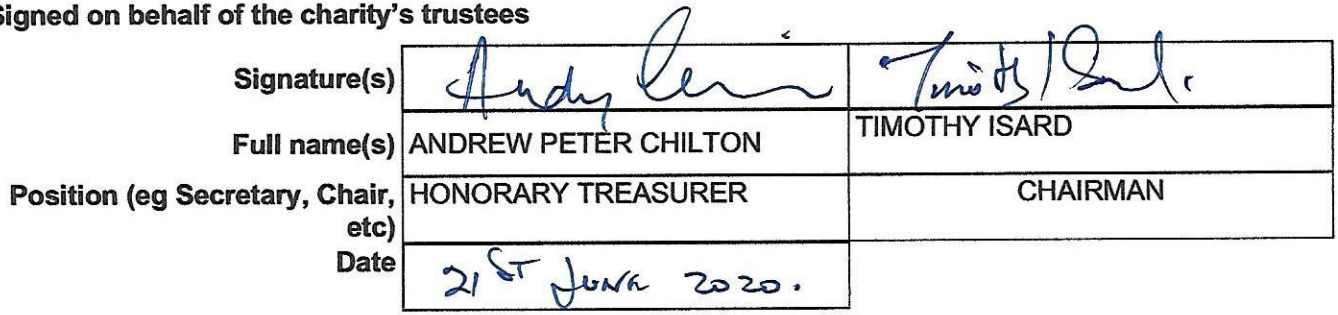 Signed on behalf of the charity's trustees
Signature(s) Andy Timothy Isard.
Full name(s) ANDREW PETER CHILTON TIMOTHY ISARD
Position (eg Secretary, Chair, HONORARY TREASURER CHAIRMAN
etc)
Date 21ST JUNE 2020.